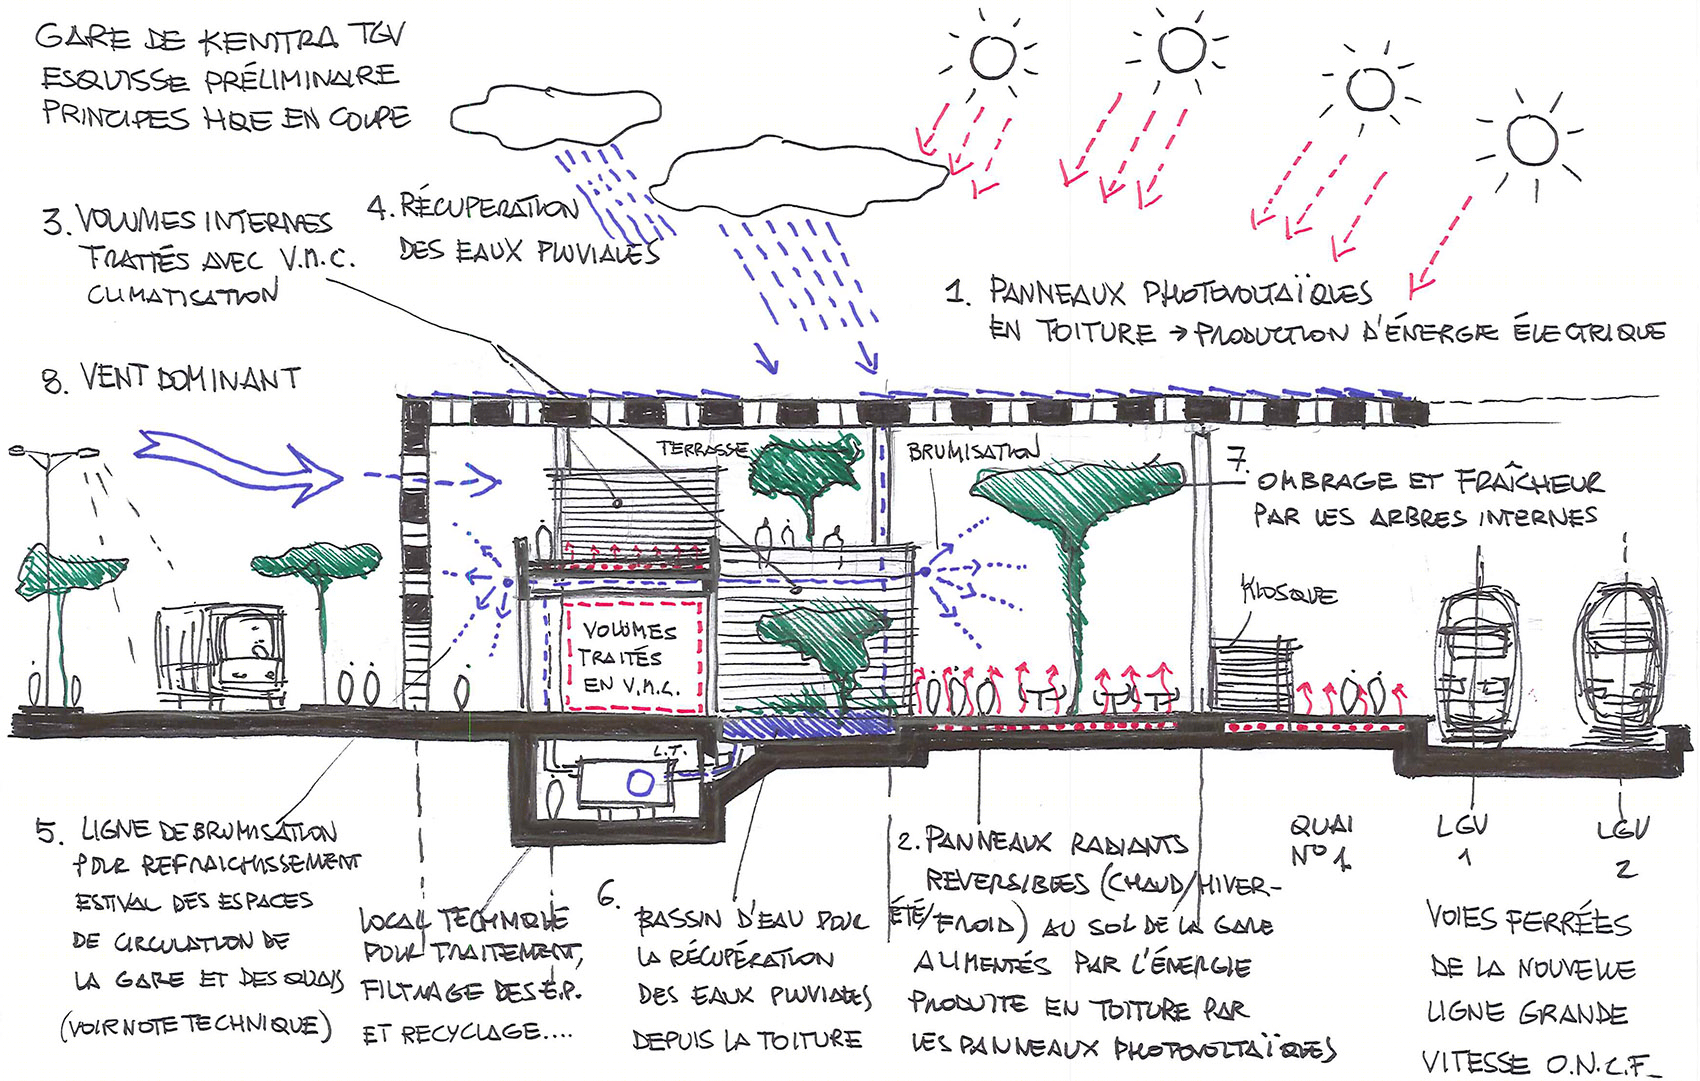 GARE DE KENITRA TGV
ESQUISSE PRÉLIMINAIRE
PRINCIPES HQE EN COUPE
3. VOLUMES INTERNES
TRAITÉS AVEC V.M.C.
CLIMATISATION
4. RÉCUPERATION
DES EAUX PLUVIALES
1. PANNEAUX PHOTOVOLTAÏQUES
EN TOITURE → PRODUCTION D'ÉNERGIE ÉLECTRIQUE
8. VENT DOMINANT
TERRASSE
BRUMISATION
7. OMBRAGE ET FRAÎCHEUR
PAR LES ARBRES INTERNES
KIOSQUE
VOLUMES
TRAITÉS
EN V.M.C.
L.T.
5. LIGNE DE BRUMISATION
POUR REFRAICHISSEMENT
ESTIVAL DES ESPACES
DE CIRCULATION DE
LA GARE ET DES QUAIS
(VOIR NOTE TECHNIQUE)
LOCAL TECHNIQUE
POUR TRAITEMENT,
FILTRAGE DES E.P.
ET RECYCLAGE....
6. BASSIN D'EAU POUR
LA RÉCUPÉRATION
DES EAUX PLUVIALES
DEPUIS LA TOITURE
2. PANNEAUX RADIANTS
REVERSIBLES (CHAUD/HIVER-
ÉTÉ/FROID) AU SOL DE LA GARE
ALIMENTÉS PAR L'ÉNERGIE
PRODUITE EN TOITURE PAR
LES PANNEAUX PHOTOVOLTAÏQUES
QUAI
N° 1
LGV
1
LGV
2
VOIES FERRÉES
DE LA NOUVELLE
LIGNE GRANDE
VITESSE O.N.C.F_